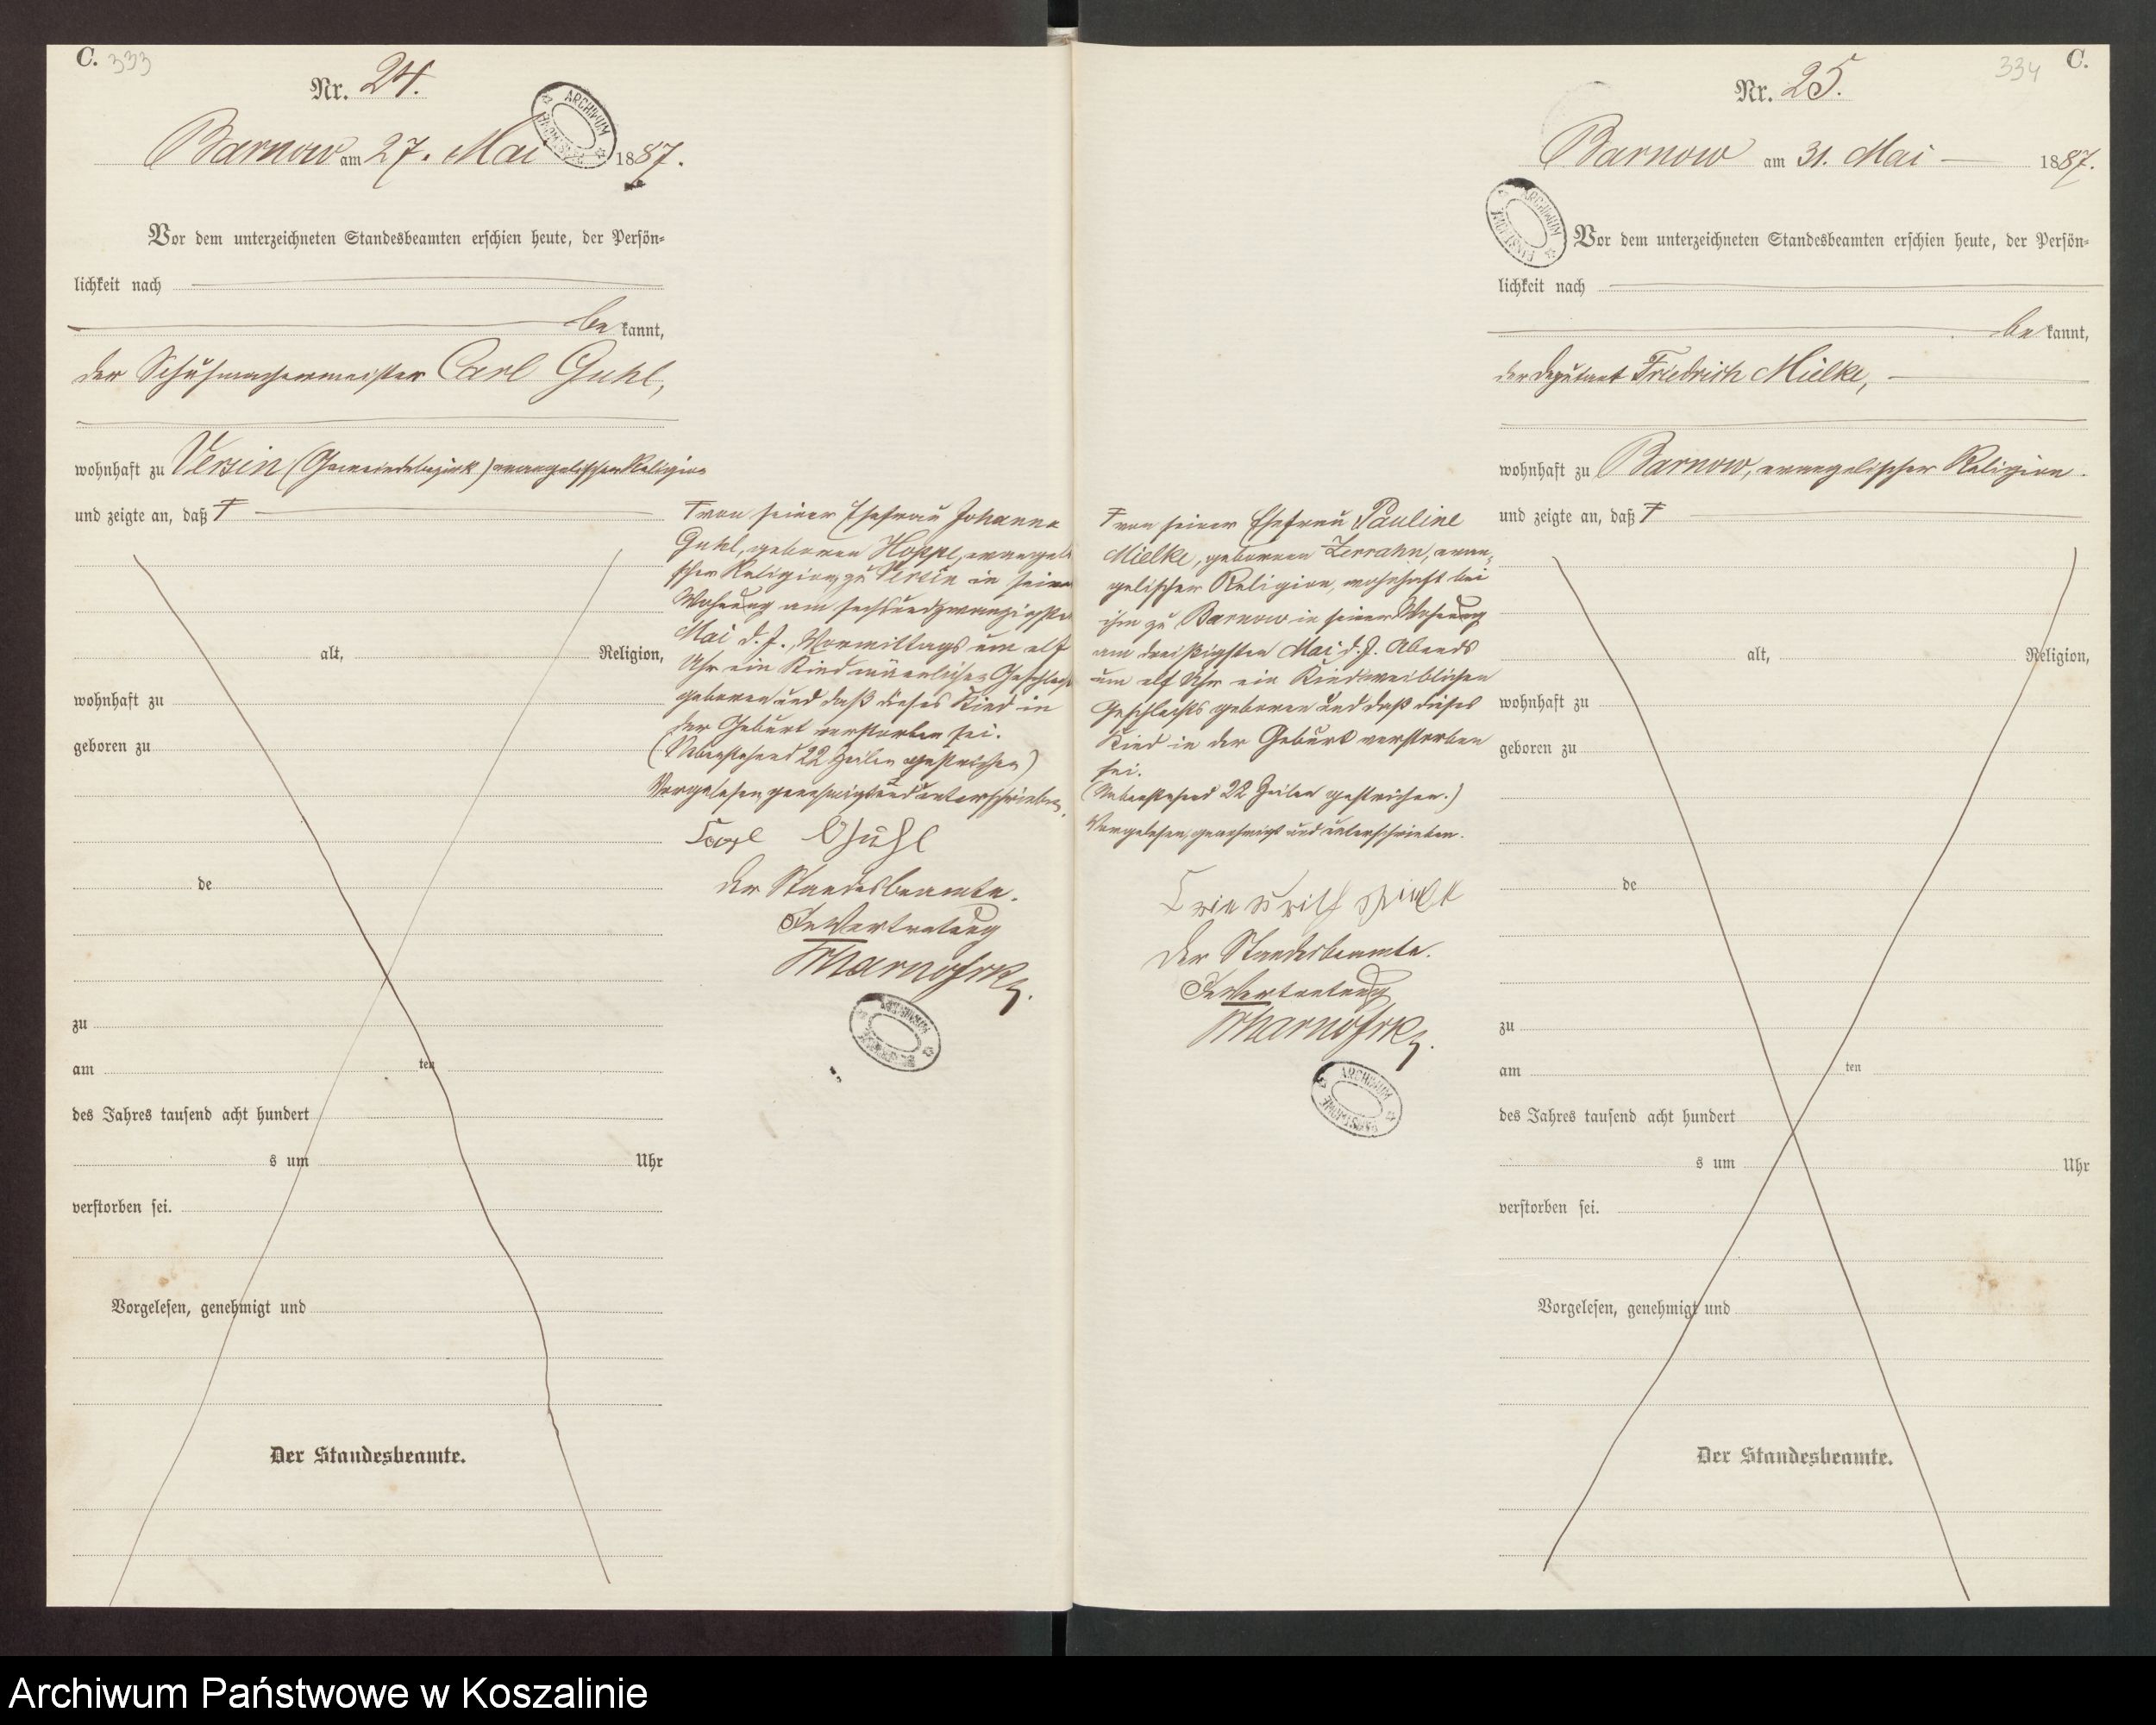 C. 333
Nr. 24.
Barnow am 27. Mai 1887.
Vor dem unterzeichneten Standesbeamten erschien heute, der Persön-
lichkeit nach
be kannt,
der Schuhmachermeister Carl Guhl,
wohnhaft zu Versin (Gemeindebezirk) evangelischer Religion
und zeigte an, daß †
alt, Religion,
wohnhaft zu
geboren zu
de
zu
am ten
des Jahres tausend acht hundert
s um Uhr
verstorben sei.
Vorgelesen, genehmigt und
Der Standesbeamte.
† von seiner Ehefrau Johanna
Guhl, geboren Hoppe, evangeli
scher Religion, zu Versin in seiner
Wohnung am sechsundzwanzigsten
Mai d. J., Vormittags um elf
Uhr ein Kind männlichen Geschlechts
geboren und daß dieses Kind in
der Geburt verstorben sei.
(Nebenstehend 22 Zeilen gestrichen)
Vorgelesen, genehmigt und unterschrieben.
Carl Guhl
Der Standesbeamte.
In Vertretung
ARCHIWUM
PAŃSTWOWE
334 C.
Nr. 25.
Barnow am 31. Mai 1887.
ARCHIWUM
PAŃSTWOWE
Vor dem unterzeichneten Standesbeamten erschien heute, der Persön-
lichkeit nach
be kannt,
der Deputant Friedrich Mielke,
wohnhaft zu Barnow, evangelischer Religion
und zeigte an, daß †
† von seiner Ehefrau Pauline
Mielke, geborenen Zerrahn, evan-
gelischer Religion, wohnhaft bei
ihm zu Barnow in seiner Wohnung
am dreißigsten Mai d. J. Abends
um elf Uhr ein Kind weiblichen
Geschlechts geboren und daß dieses
Kind in der Geburt verstorben
sei.
(Nebenstehend 22 Zeilen gestrichen.)
Vorgelesen, genehmigt und unterschrieben.
Der Standesbeamte.
In Vertretung
ARCHIWUM
PAŃSTWOWE
alt, Religion,
wohnhaft zu
geboren zu
de
zu
am ten
des Jahres tausend acht hundert
s um Uhr
verstorben sei.
Vorgelesen, genehmigt und
Der Standesbeamte.
Archiwum Państwowe w Koszalinie